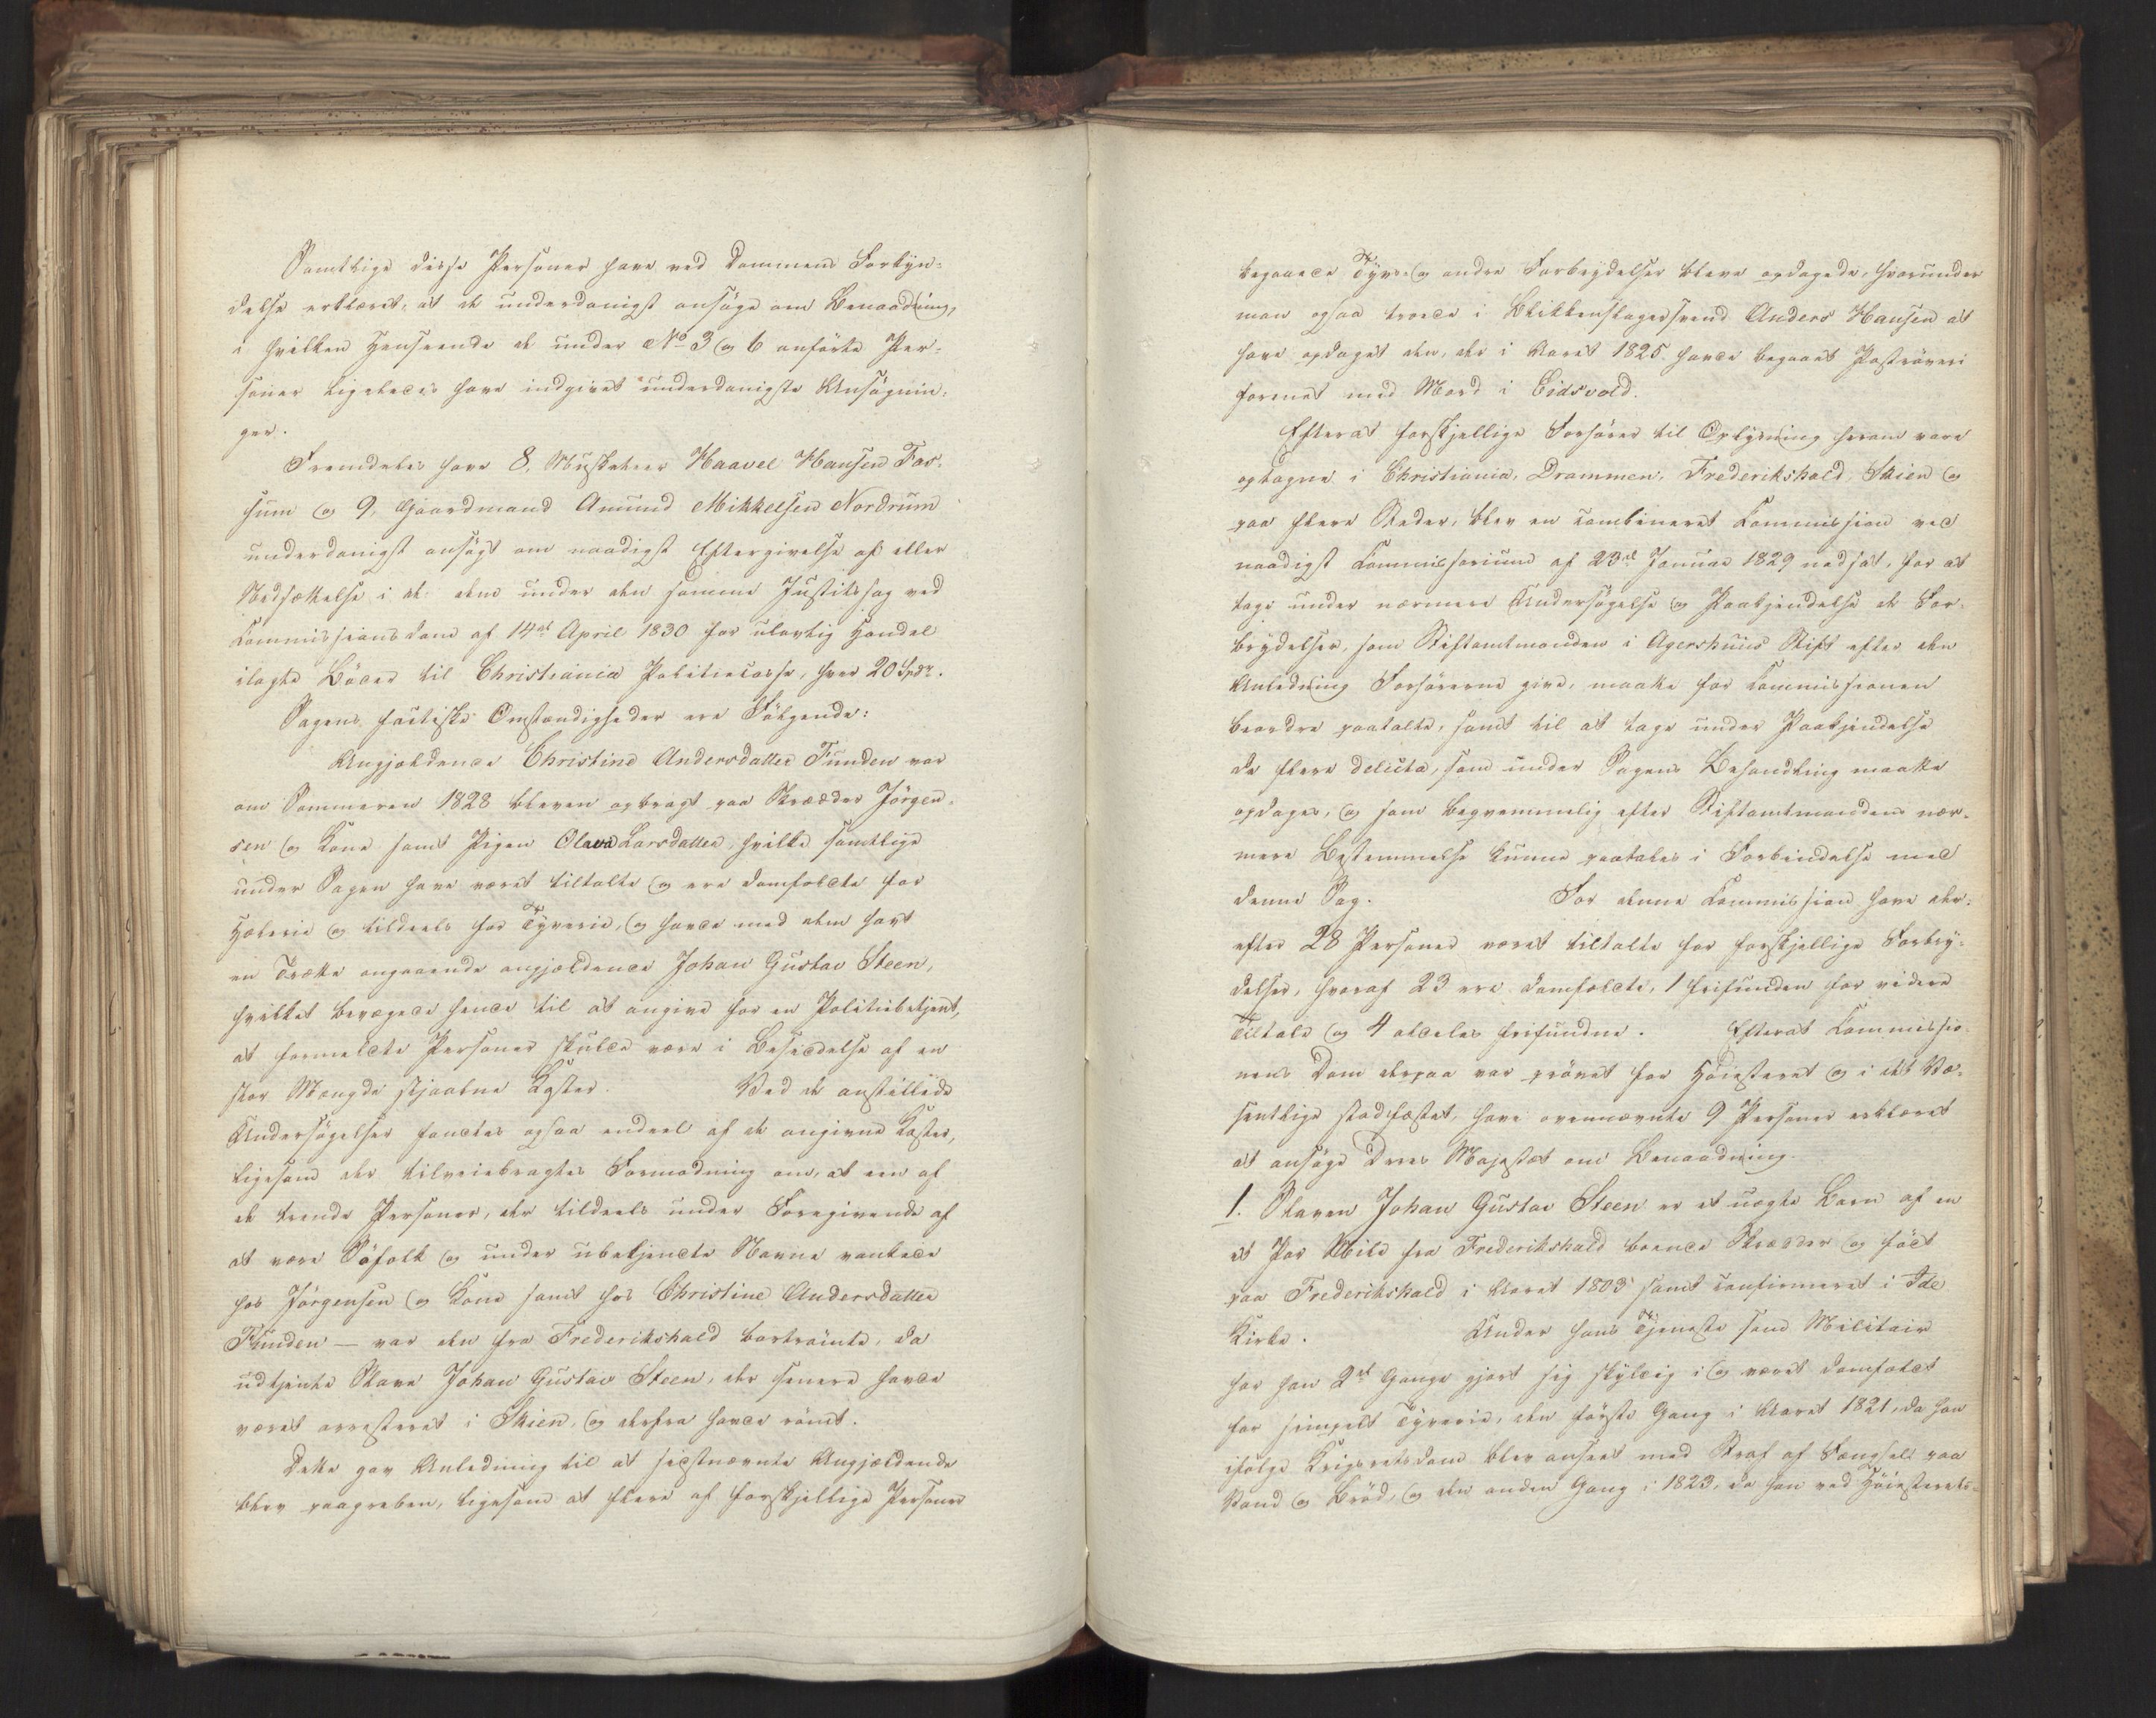 Samtlige disse Personer have ved Dommens Forkyn-
delse erklæret, at de underdanigst ansøge om Benaadning,
i hvilken Henseende de under No 3 og 6 anførte Per-
soner ligeledes have indgivet underdanigste Ansøgnin-
ger.
Fremdeles have 8, Musketeer Haavel Hansen Fos-
sum og 9, Gaardmand Amund Mikkelsen Nordrum
underdanigst ansøgt om naadigst Eftergivelse af eller
Nedsættelse i de dem under den samme Justitssag ved
Kommissionsdom af 14de April 1830 for ulovlig Handel
ilagte Bøder til Christiania Politiekasse, hver 20 Spdr.
Sagens factiske Omstændigheder ere Følgende:
Angjældende Christine Andersdatter Funden var
om Sommeren 1828 bleven opbragt paa Skræder Jörgen-
sen og Kone samt Pigen Olava Larsdatter, hvilke samtlige
under Sagen have været tiltalte og ere domfældte for
Hæleri og tildeels for Tyverie, og havde med dem havt
en Trætte angaaende angjældende Johan Gustav Steen,
hvilket bevægede hende til at angive for en Politiebetjent,
at formeldte Personer skulde være i Besiddelse af en
stor Mængde stjaalne Koster. Ved de anstillede
Undersøgelser fandtes ogsaa endeel af de angivne Koster,
ligesom der tilveiebragtes Formodning om, at een af
de trende Personer, der tildeels under Foregivende af
at være Søfolk og under ubekjendte Navne vankede
hos Jörgensen og Kone samt hos Christine Andersdatter
Funden — var den fra Frederikshald bortrømte, da
udtjente Slave Johan Gustav Steen, der senere havde
været arresteret i Skien, og derfra havde rømt.
Dette gav Anledning til at sidstnævnte Angjældende
blev paagreben, ligesom at flere af forskjellige Personer
begaaede Tyvs- og andre Forbrydelser bleve opdagede, hvorunder
man ogsaa troede i Blikkenslagersvend Anders Hansen at
have opdaget den, der i Aaret 1825 havde begaaet Postrøveri
forenet med Mord i Eidsvold.
Efterat forskjellige Forhører til Oplysning herom vare
optagne i Christiania, Drammen, Frederikshald, Skien og
paa flere Steder, blev en combineret Kommission ved
naadigst Kommissorium af 23de Januar 1829 nedsat, for at
tage under nærmere Undersøgelse og Paakjendelse de For-
brydelser, som Stiftamtmanden i Agershuus Stift efter den
Anledning Forhørerne give, maatte for Kommissionen
beordre paatalte, samt til at tage under Paakjendelse
de flere delicta, som under Sagens Behandling maatte
opdages, og som beqvemmelig efter Stiftamtmandens nær-
mere Bestemmelse kunne paatales i Forbindelse med
denne Sag. For denne Kommission have der-
efter 28 Personer været tiltalte for forskjellige Forbry-
delser, hvoraf 23 ere domfældte, 1 frifunden for videre
Tiltale og 4 aldeles frifundne. Efterat Kommissio-
nens Dom derpaa var prøvet for Høiesteret og i det Væ-
sentlige stadfæstet, have ovennævnte 9 Personer erklæret
at ansøge Deres Majestæt om Benaadning.
1. Slaven Johan Gustav Steen er et uægte Barn af en
et Par Mile fra Frederikshald boende Skræder og født
paa Frederikshald i Aaret 1803 samt confirmeret i Ide
Kirke. Under hans Tjeneste som Militair
har han 2de Gange gjort sig skyldig i og været domfældt
for simpelt Tyverie, den første Gang i Aaret 1821, da han
ifølge Krigsretsdom blev anseet med Straf af Fængsel paa
Vand og Brød, og den anden Gang i 1823, da han ved Høiesterets-